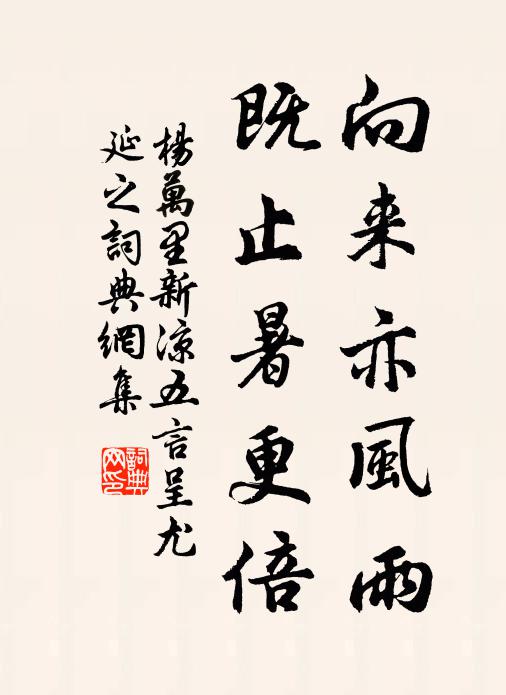 向来亦風雨
既止暑更倍
楊萬里新涼五言呈尤
延之詞典網集
詞典网印